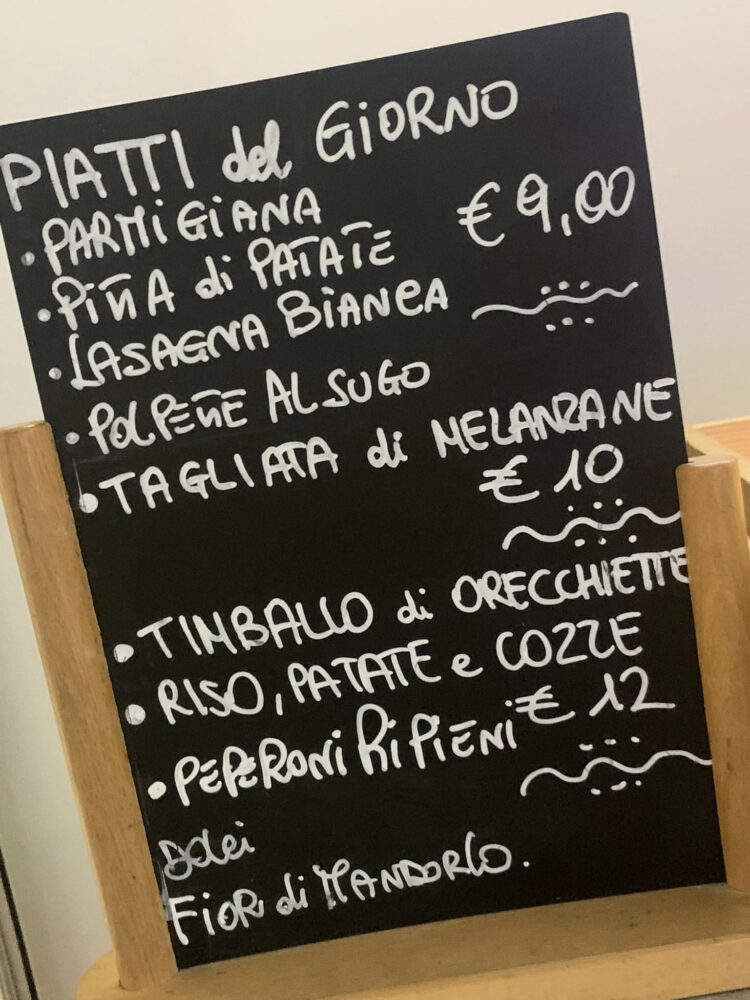 PIATTI del GIORNO
• PARMIGIANA
€ 9,00
• PITTA di PATATE
• LASAGNA BIANCA
• POLPETTE AL SUGO
• TAGLIATA di MELANZANE
€ 10
• TIMBALLO di ORECCHIETTE
• RISO, PATATE e COZZE
€ 12
• PEPERONI RIPIENI
Dolci
FIOR di MANDORLO.